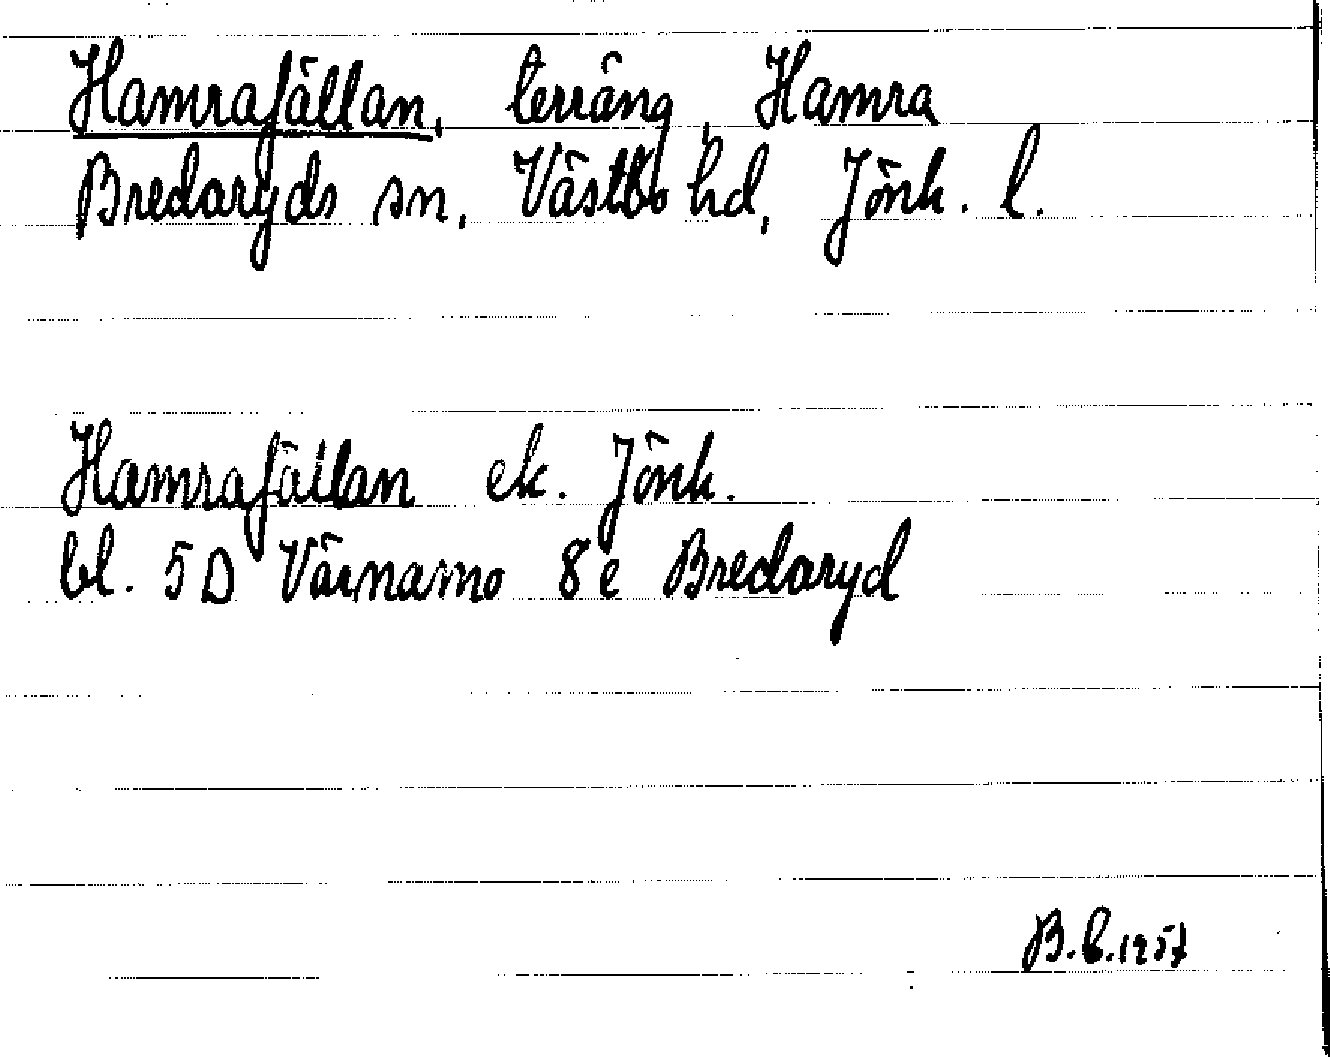 Hamrafällan, terräng, Hamra
Bredaryds sn, Västbo hd, Jönk. l.
Hamrafällan ek. Jönk.
bl. 5D Värnamo 8e Bredaryd
B.E. 1957